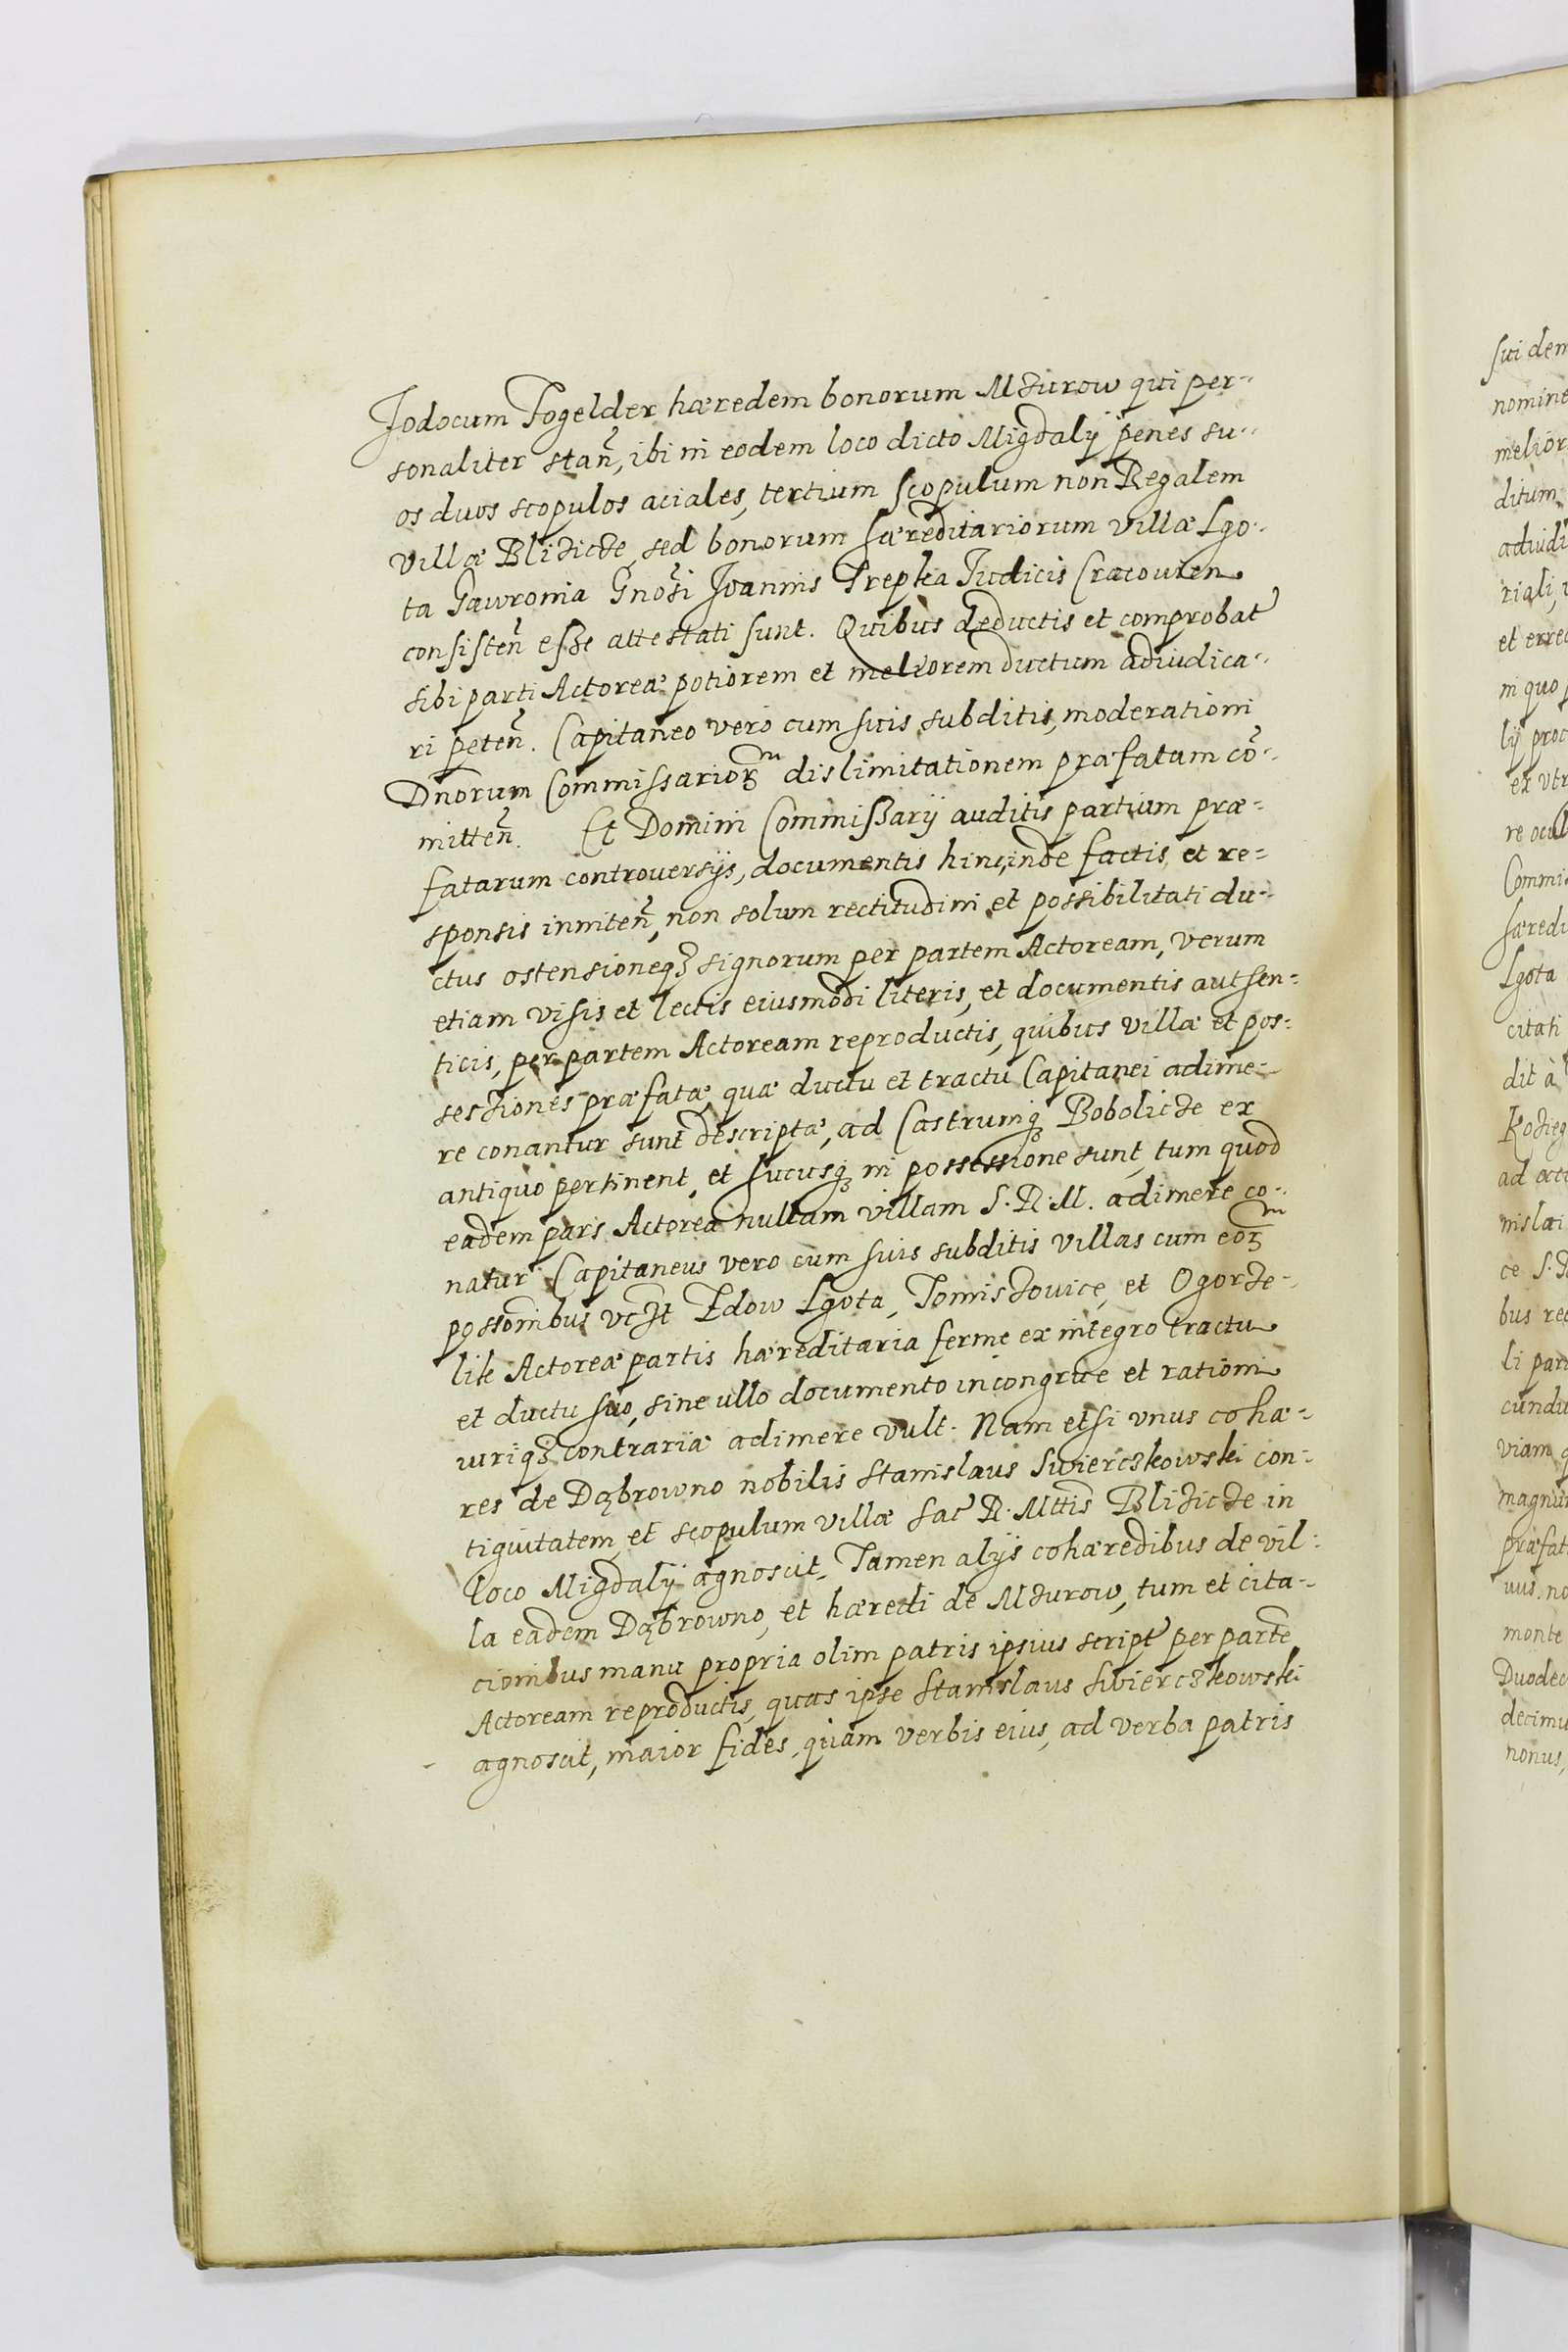 Jodocum Fogelder hæredem bonorum Mzurow qui per-
sonaliter stan̄, ibi in eodem loco dicto Migdaly penes su-
os duos scopulos aciales, tertium scopulum non Regalem
villæ Blizicze, sed bonorum hæreditariorum villæ Lgo-
ta Gawronia Gnosi Joannis Trepka Judicis Cracouien
consisten̄ esse attestati sunt. Quibus deductis et comprobat
sibi parti Actoreæ potiorem et meliorem ductum adiudica-
ri peten̄. Capitaneo vero cum suis subditis, moderationi
Dnorum Commissarior̄ dislimitationem præfatam cō-
mitten̄. Et Domini Commissarij auditis partium præ-
fatarum controuersijs, documentis hinc, inde factis, et re-
sponsis inniten̄, non solum rectitudini et possibilitati du-
ctus ostensioneqʒ signorum per partem Actoream, verum
etiam visis et lectis eiusmodi literis, et documentis autsen-
ticis, per partem Actoream reproductis, quibus villæ et pos-
sessiones præfatæ quæ ductu et tractu Capitanei adime-
re conantur sunt descriptæ, ad Castrumqʒ Bobolicze ex
antiquo pertinent, et hucusqʒ in possessione sunt, tum quod
eadem pars Actorea nullam villam S. R. M. adimere co-
natur Capitaneus vero cum suis subditis villas cum eor̄
possonibus vczt Zdow Lgota, Tomiszowice, et Ogorze-
lik Actoreæ partis hæreditaria ferme ex integro tractu
et ductu suo, sine ullo documento incongrue et rationi
iuriqʒ contrariæ adimere vult. Nam etsi vnus cohæ-
res de Dąbrowno nobilis Stanislaus Swierczkowski con-
tiguitatem et scopulum villæ Sac R. Mttis Blizicze in
loco Migdaly agnoscit, Tamen alijs cohæredibus de vil-
la eadem Dąbrowno, et hæredi de Mzurow, tum et cita-
cionibus manu propria olim patris ipsius script per partē
Actoream reproductis, quas ipse Stanislaus Swierczkowski
agnoscit, maior fides, quàm verbis eius, ad verba patris